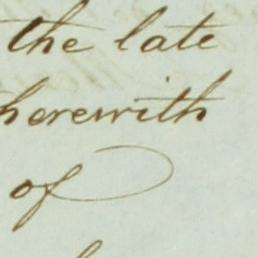 the late
herewith
of